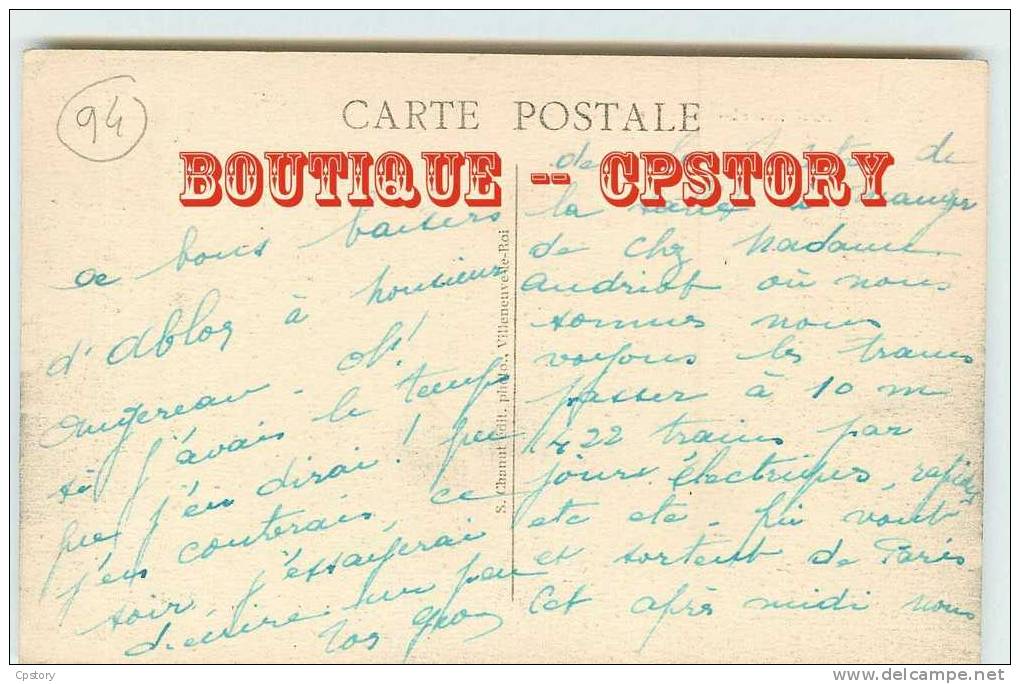 94
CARTE POSTALE
BOUTIQUE -- CPSTORY
de bons baisers
d'Ablon à Monsieur
Augereau - Oh!
si j'avais le temps
que j'en dirai! que
j'en conterais, ce
soir, j'essaierai
d'écrire un peu
vos
S. Chanut Edit. photo., Villeneuve-le-Roi
de de
la
de chez Madame
Andriot où nous
sommes nous
voyons les trains
passer à 10 m
422 trains par
jour. électriques, rapides
etc etc - qui vont
et sortent de Paris
Cet après midi nous
Cpstory
delcampe.net